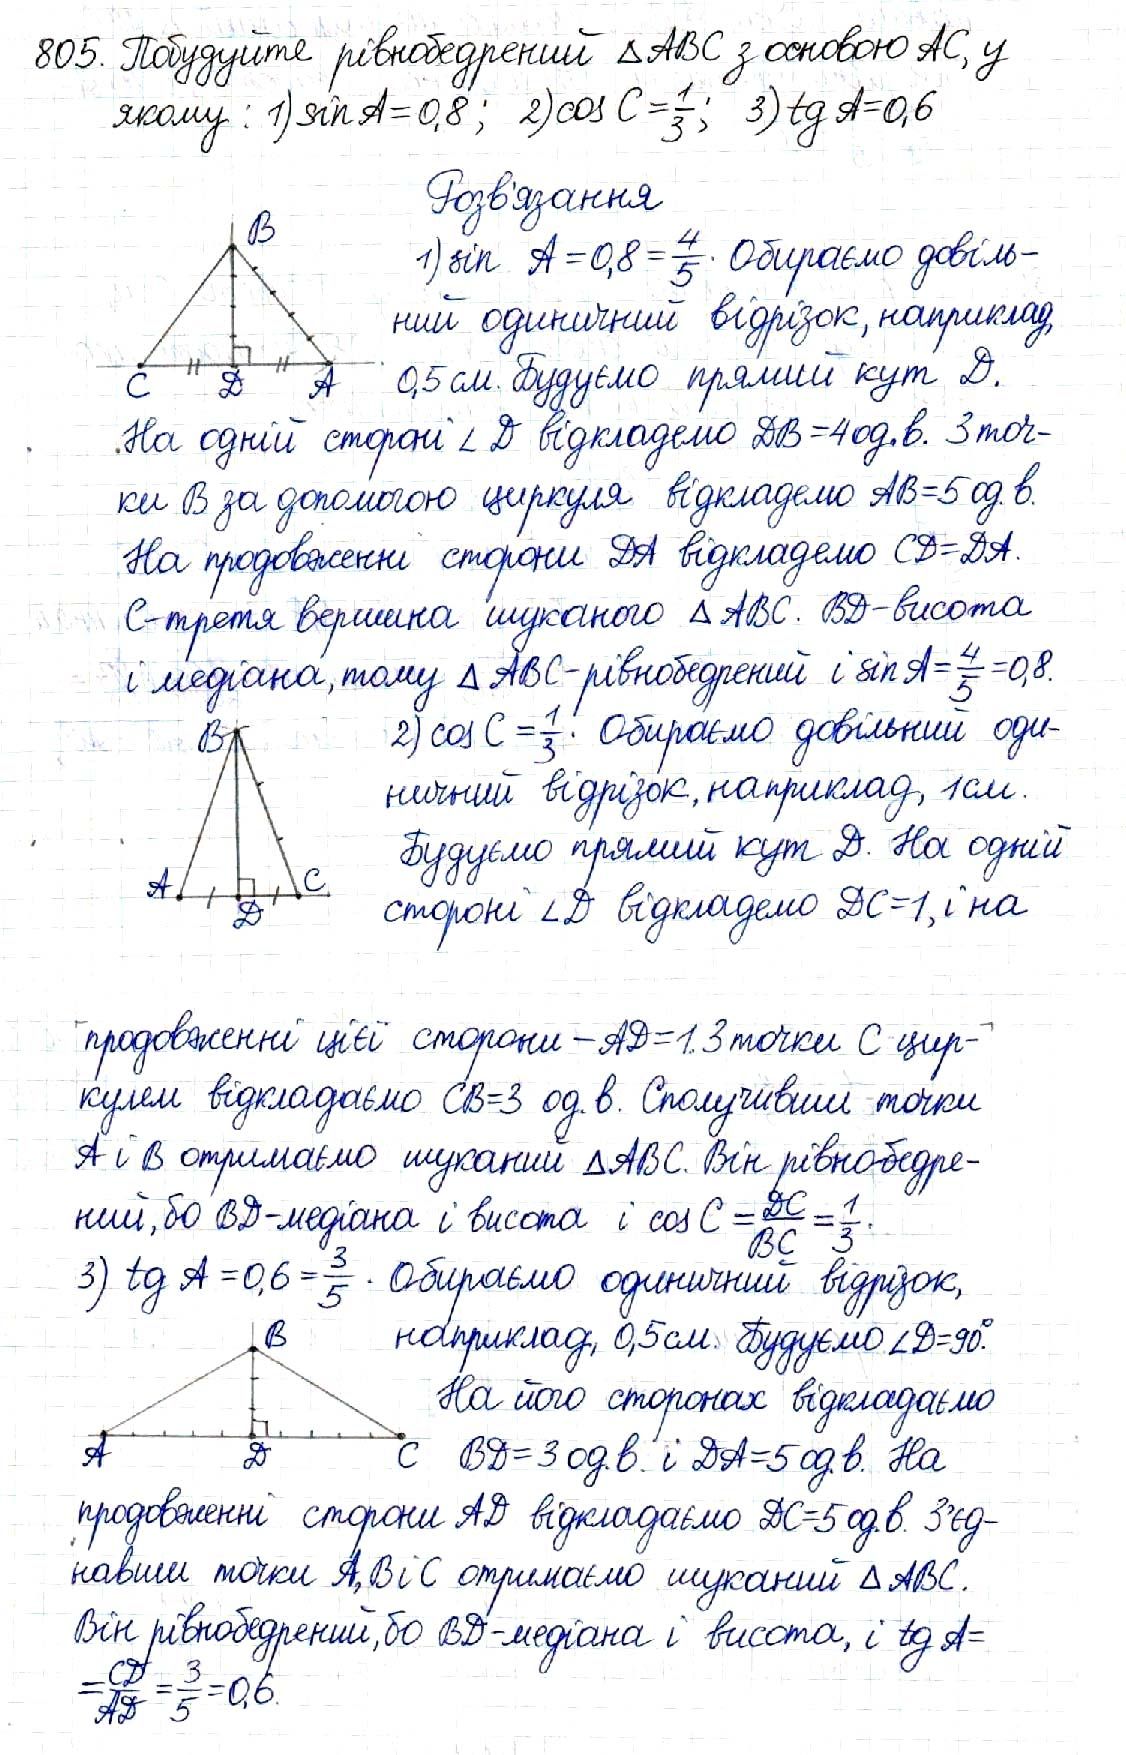 805. Побудуйте рівнобедрений △ABC з основою AC, у
якому: 1) sin A = 0,8; 2) cos C = 1/3; 3) tg A = 0,6
Розв'язання
B
C D A
1) sin A = 0,8 = 4/5. Обираємо довіль-
ний одиничний відрізок, наприклад,
0,5 см. Будуємо прямий кут D.
На одній стороні ∠D відкладемо DB = 4 од. в. З точ-
ки B за допомогою циркуля відкладемо AB = 5 од. в.
На продовженні сторони DA відкладемо CD = DA.
C - третя вершина шуканого △ABC. BD - висота
і медіана, тому △ABC - рівнобедрений і sin A = 4/5 = 0,8.
B
A D C
2) cos C = 1/3. Обираємо довільний оди-
ничний відрізок, наприклад, 1 см.
Будуємо прямий кут D. На одній
стороні ∠D відкладемо DC = 1, і на
продовженні цієї сторони - AD = 1. З точки C цир-
кулем відкладаємо CB = 3 од. в. Сполучивши точки
A і B отримаємо шуканий △ABC. Він рівнобедре-
ний, бо BD - медіана і висота і cos C = DC/BC = 1/3.
3) tg A = 0,6 = 3/5. Обираємо одиничний відрізок,
наприклад, 0,5 см. Будуємо ∠D = 90°.
B
A D C
На його сторонах відкладаємо
BD = 3 од. в. і DA = 5 од. в. На
продовженні сторони AD відкладаємо DC = 5 од. в. З'єд-
навши точки A, B і C отримаємо шуканий △ABC.
Він рівнобедрений, бо BD - медіана і висота, і tg A =
= CD/AD = 3/5 = 0,6.